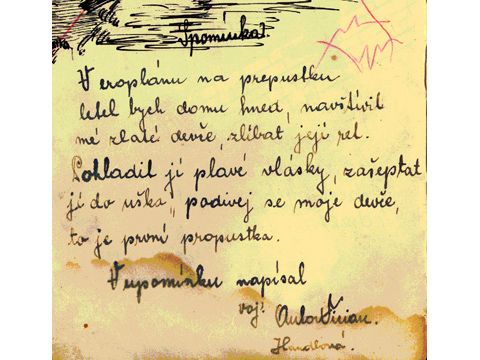 Spomínka!
V eroplánu na prepustku
letel bych domu hned, navštívit
mé zlaté devče, zlíbat její ret.
Pohladil jí plavé vlásky, zašeptat
jí do uška „ podivej se moje devče,
to je první propustka.
V upomínku napísal
voj.
Handlová.